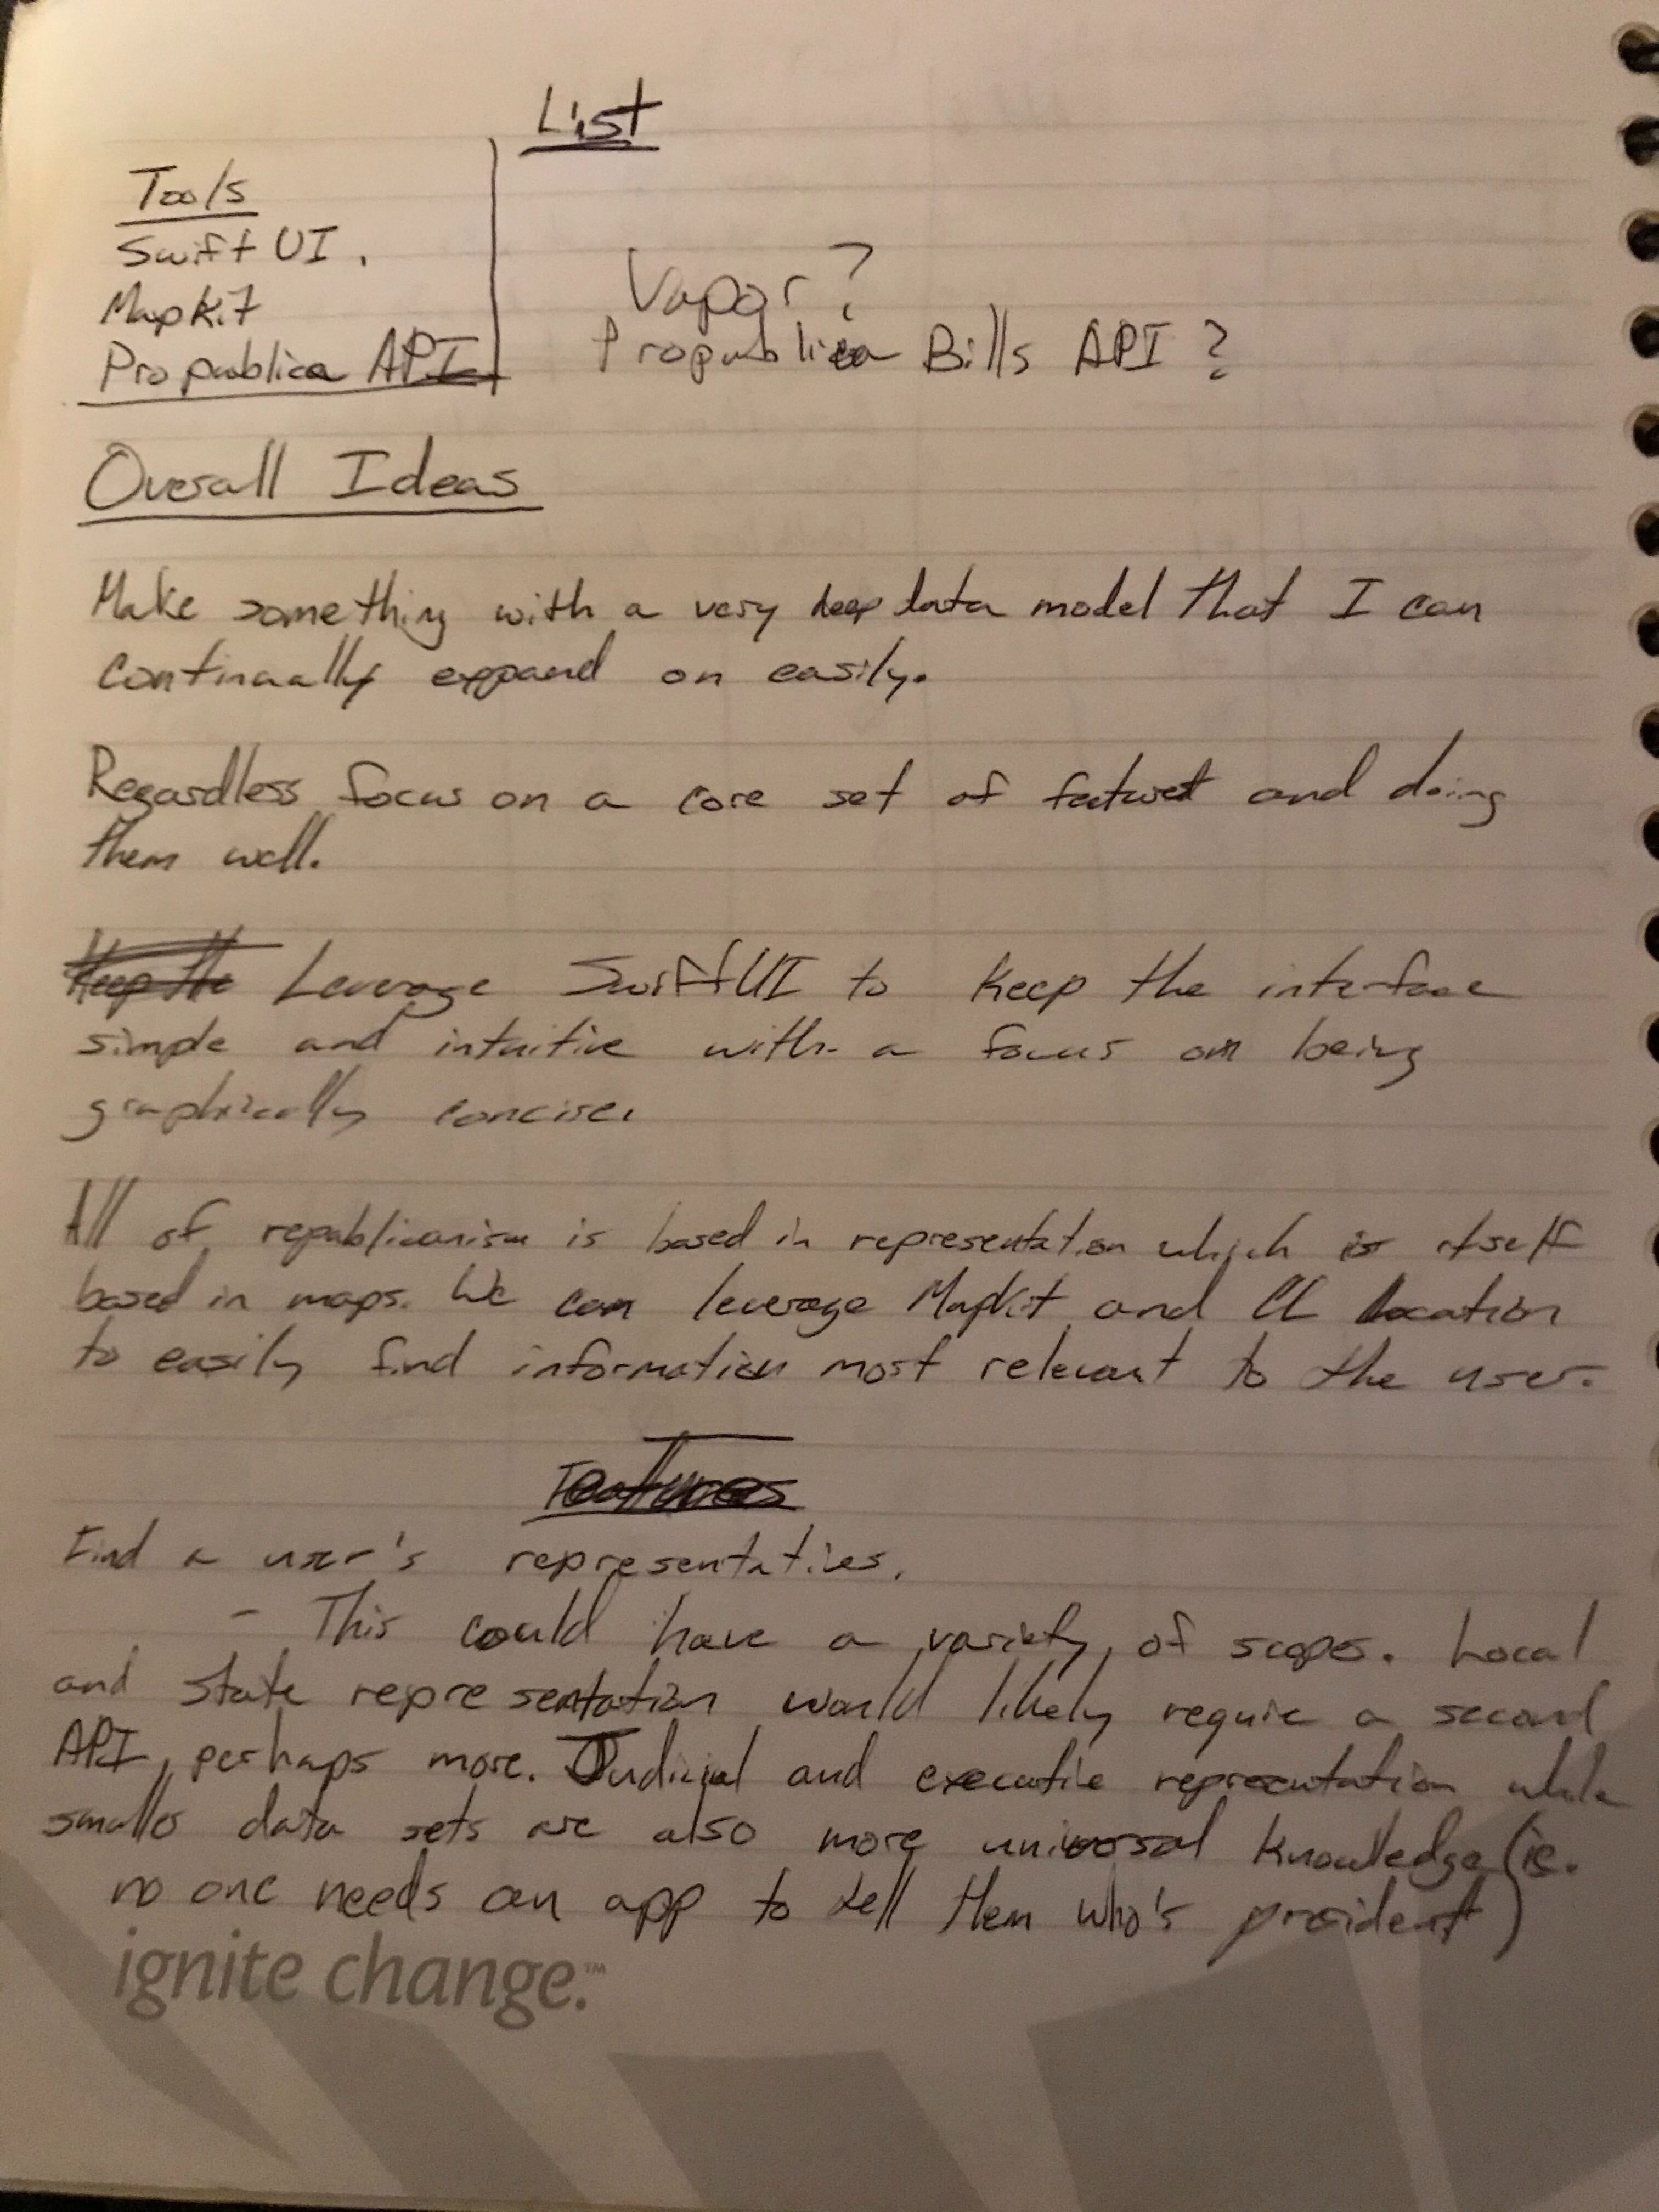 List
Tools
Swift UI.
Mapkit
Propublica API
Vapor?
Propublica Bills API ?
Overall Ideas
Make something with a very deep data model that I can
continually expand on easily.
Regardless focus on a core set of featuret and doing
them well.
Keep the Leverage SwiftUI to keep the interface
simple and intuitive with a focus on being
graphically concise.
All of republicanism is based in representation which is itself
based in maps. We can leverage Mapkit and CL location
to easily find information most relevant to the user.
Features
Find a user's representatives.
- This could have a variety of scopes. Local
and state representation would likely require a second
API, perhaps more. Judicial and executive representation while
smaller data sets are also more universal knowledge (ie.
no one needs an app to tell them who's president)
ignite change.™